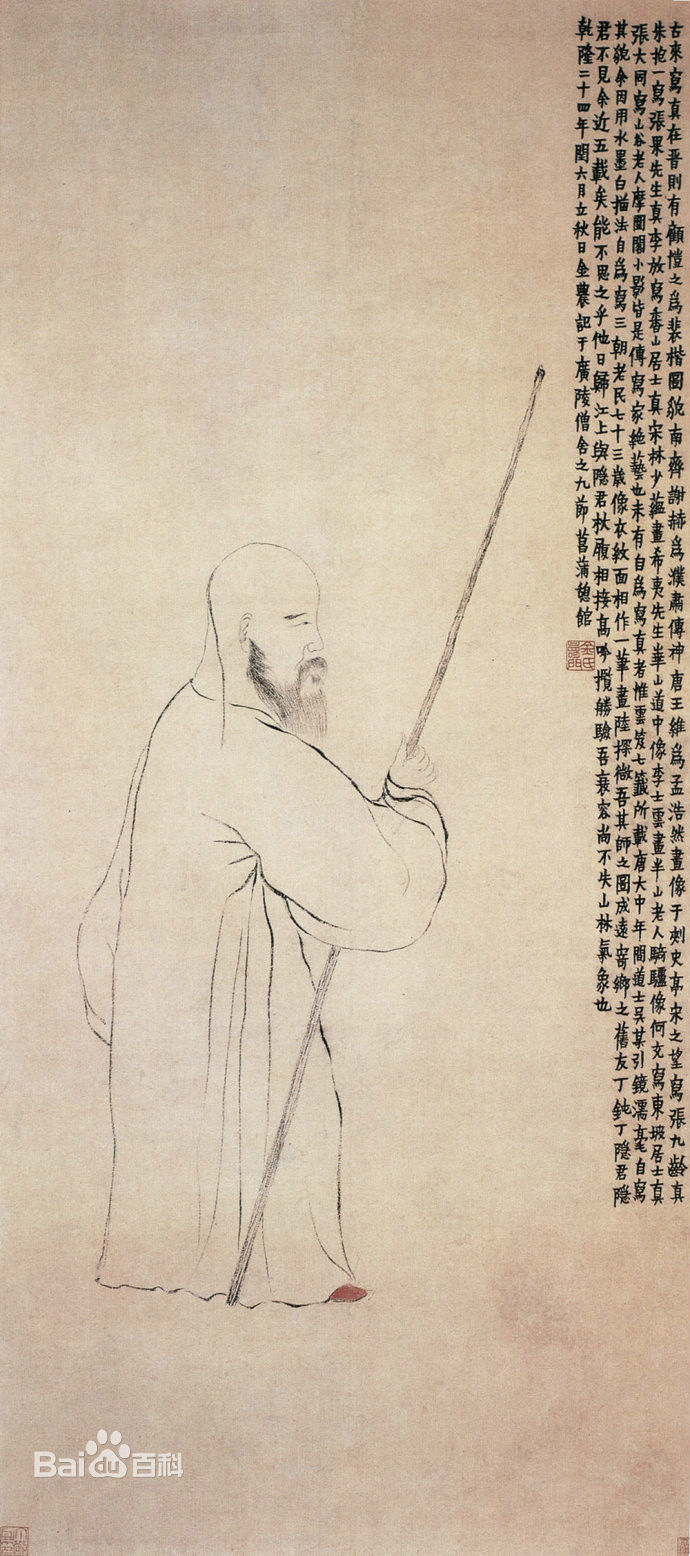 古來寫真在晉則有顧愷之爲裴楷圖貌南齊謝赫爲濮肅傳神唐王維爲孟浩然畫像于刺史亭宋之望寫張九齡真
朱抱一寫張果先生真李放寫香山居士真宋林少蘊畫希夷先生華山道中像李士雲畫半山老人騎驢像何充寫東坡居士真
張大同寫山谷老人摩圍閣小影皆是傳寫家絕藝也未有自爲寫真者惟雲笈七籤所載唐大中年間道士吳某引鏡濡毫自寫
其貌余因用水墨白描法自爲寫三朝老民七十三歲像衣紋面相作一筆畫陸探微吾其師之圖成遠寄鄉之舊友丁鈍丁隱君隱
君不見余近五載矣能不思之乎他日歸江上與隱君杖履相接高吟攬勝驗吾衰容尚不失山林氣象也
乾隆二十四年閏六月立秋日金農記于廣陵僧舍之九節菖蒲憩館
Bai百科